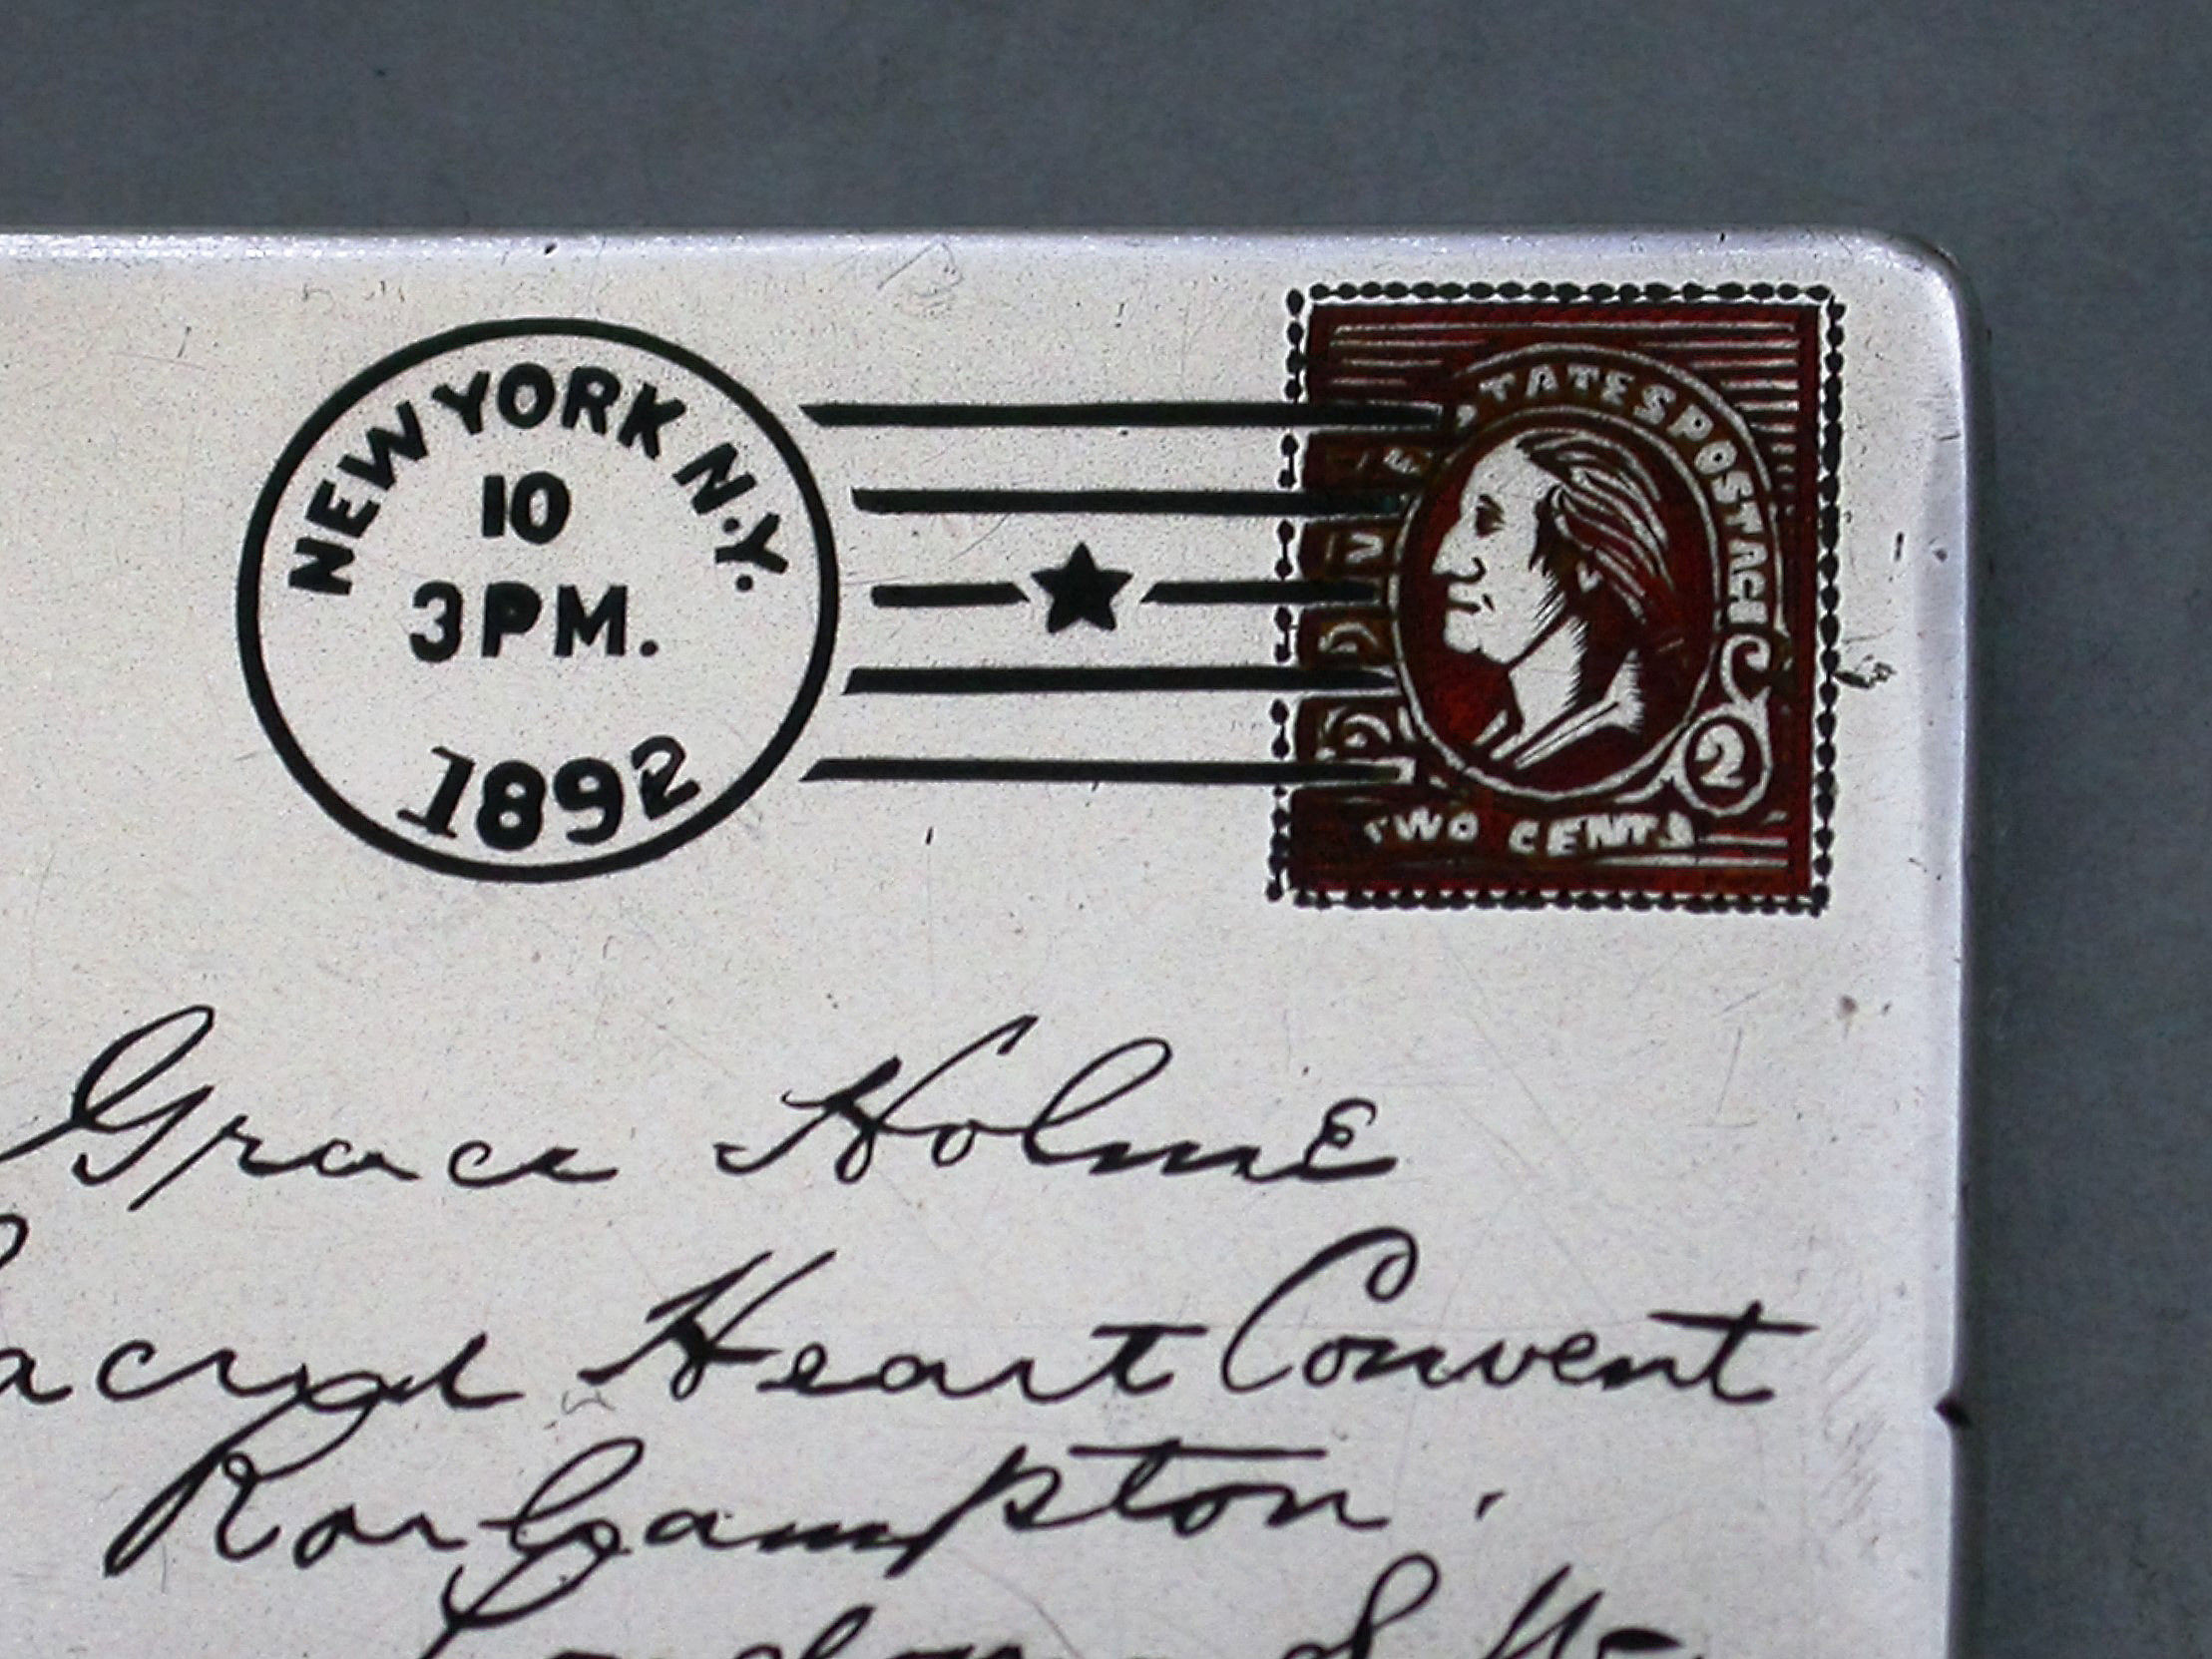 NEW YORK N.Y.
10
3 PM.
1892
STATES POSTAGE
2
TWO CENTS
Grace Holme
Sacred Heart Convent
Roehampton.
London S.W.